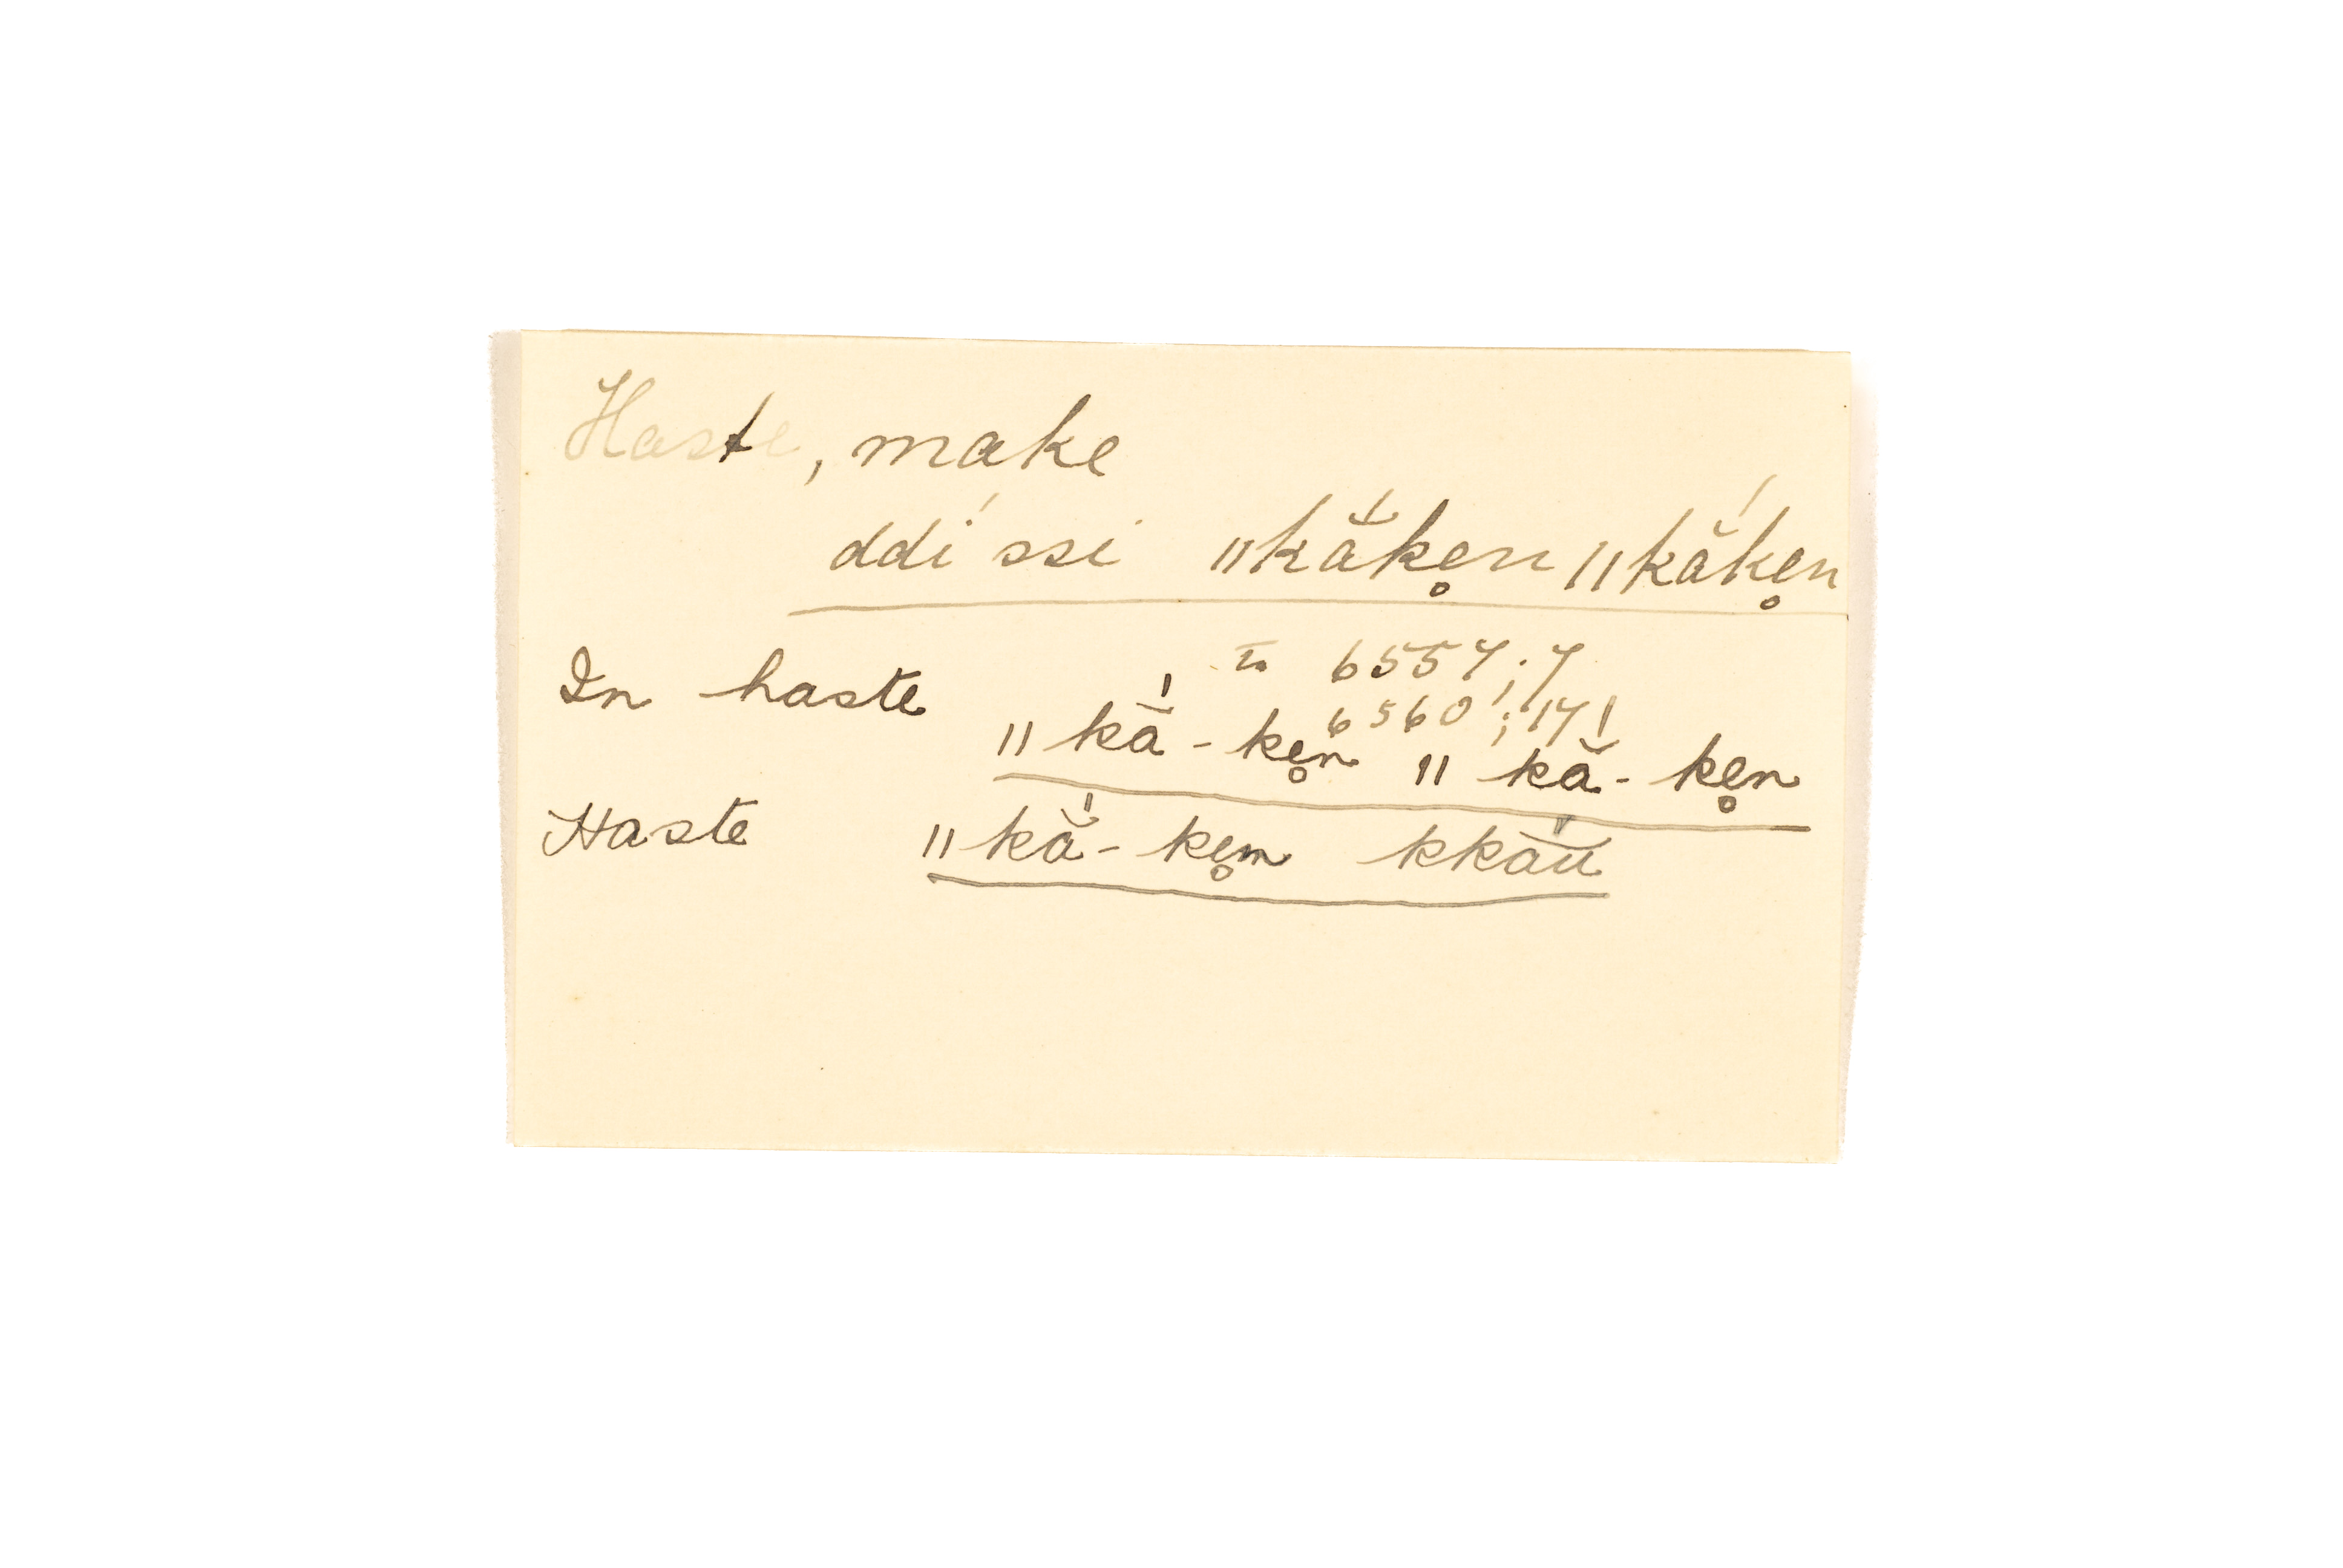 Haste, make
ddí ssi ǁkắk̥en ǁkắk̥en
In haste 6557; 7
6560; 17
ǁkắ-ke̥n ǁkắ-ke̥n
Haste ǁkắ-ke̥m kkā́u